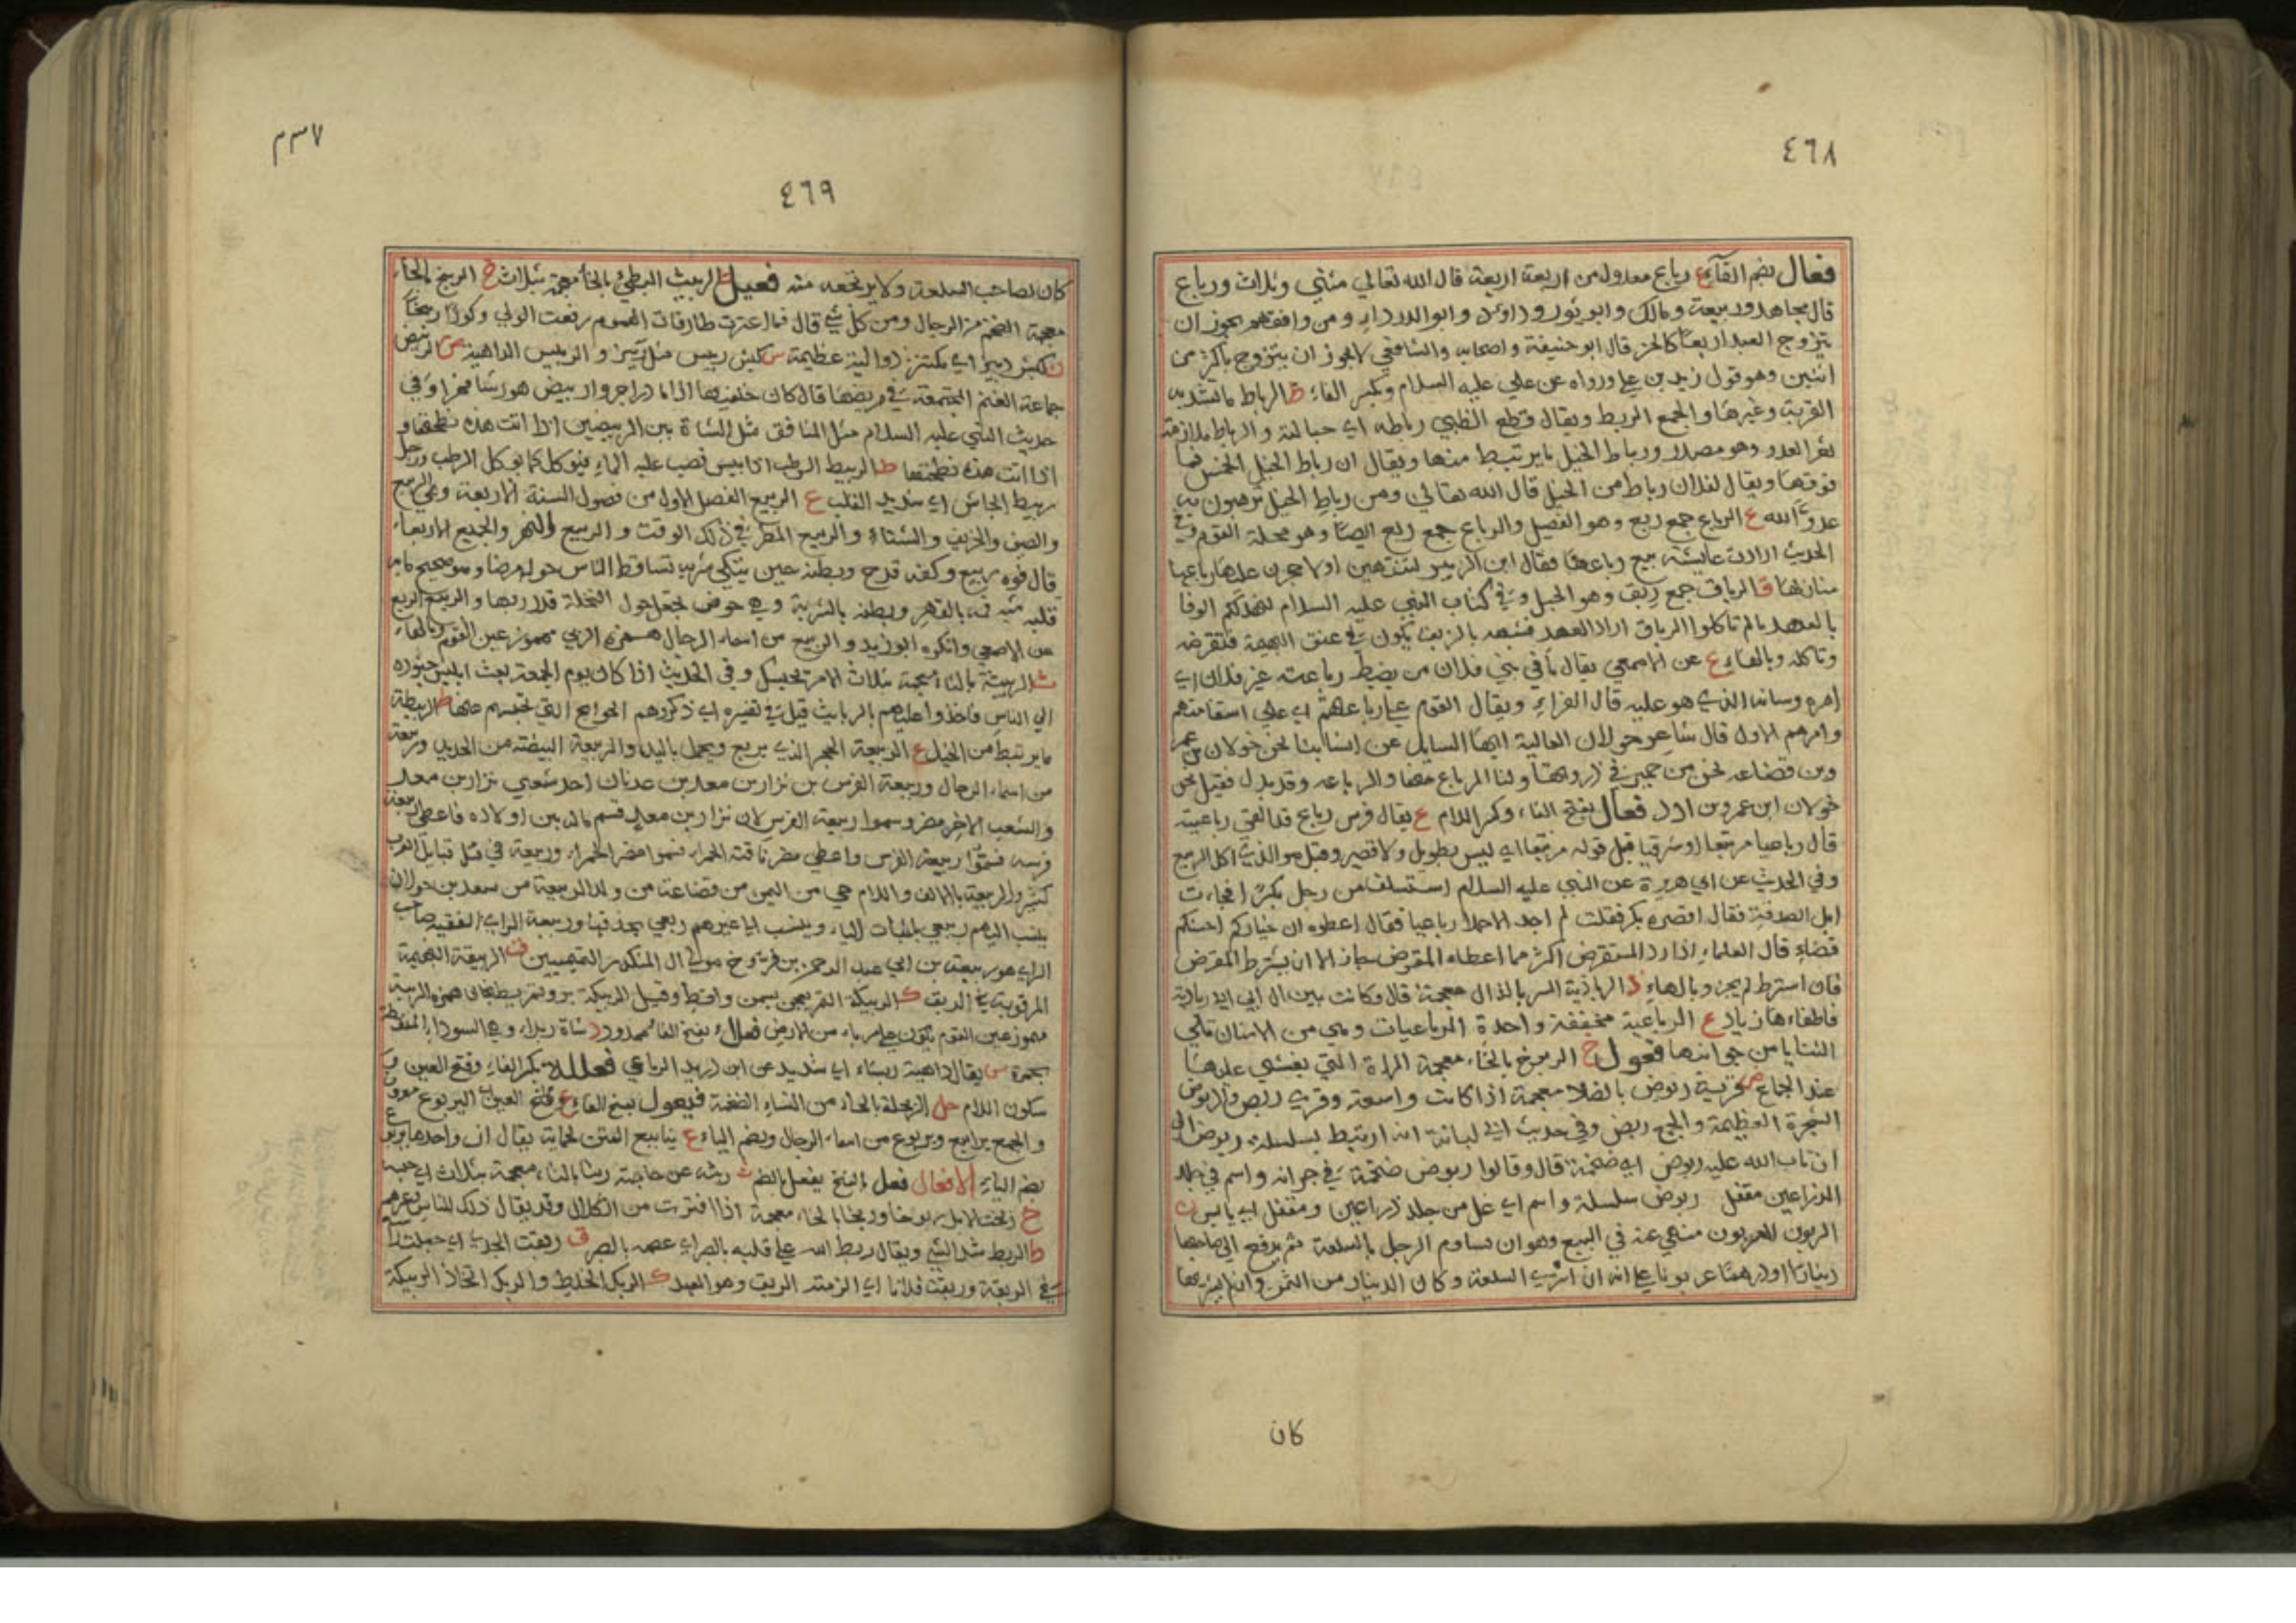 ٤٦٨
فعال بضم الفآء ع رباع معدول من اربعة اربعة قال الله تعالي مثني وثلاث ورباع
قال مجاهد وربيعة ومالك وابو ثور وداود وابو الدرداء ومن وافقهم يجوز ان
يتزوج العبد اربعًا كالحر قال ابو حنيفة واصحابه والشافعي لا يجوز ان يتزوج باكثر من
اثنين وهو قول زيد بن علي ورواه عن علي عليه السلام وبكسر الفاء ط الرباط ما تشد به
القربة وغيرها والجمع الربط ويقال قطع الظبي رباطه اي حبالته والرباط ملازمة
ثغر العدو وهو مصدر ورباط الخيل ما يرتبط منها ويقال ان رباط الخيل الخمس فما
فوقها ويقال لفلان رباط من الخيل قال الله تعالي ومن رباط الخيل ترهبون به
عدوَّ الله ع الرباع جمع ربع وهو الفصيل والرباع جمع ربع ايضًا وهو محلة القوم وفي
الحديث ارادت عايشة بيع رباعها فقال ابن الزبير لتنتهين او لاحجرن عليها رباعها
منازلها ق الرباق جمع ربق وهو الحبل وفي كتاب النبي عليه السلام لكم الوفا
بالعهد ما لم تاكلوا الرباق اراد العهد فشبهه بالربق يكون في عنق البهيمة فتقرضه
وتاكله وبالهاء ع عن الاصمعي يقال ما في بني فلان من يضبط رباعته غير فلان اي
امره وشانه الذي هو عليه قال الفراء ويقال القوم علي رباعتهم اي علي استقامتهم
وامرهم الاول قال شاعر خولان العالية ايها السايل عن انسابنا نحن خولان بن عمر
وبن قضاعه نحن من حمير في ذروتها ولنا المرباع منها والرباعه وقد بدل فقيل نحن
خولان ابن عمرو بن ادد فعال بفتح الفاء وكسر اللام ع يقال فرس رباع قد القي رباعيته
قال رباعيا مرتبعا او شرقبا قيل قوله مرتبعا اي ليس بطويل ولا قصير وقيل هو الذي اكل الربيع
وفي الحديث عن ابي هريرة عن النبي عليه السلام استسلف من رجل بكرًا فجاءت
ابل الصدقة فقال اقضه بكره فقلت لم اجد الا جملا رباعيا فقال اعطوه ان خياركم احسنكم
قضاء قال العلماء اذا رد المستقرض اكثر مما اعطاه المقرض جاز الا ان يشترط المقرض
فان اشترط لم يجز وبالهاء ذ الرباذية الشر بالذال معجمة قال وكانت بين ال ابي ابي رباذية
فاطفاءها زياد ع الرباعية مخففة واحدة الرباعيات وهي من الاسنان تلي
الثنايا من جوانبها فعول خ الربوخ بالخاء معجمة المراة التي يغشي عليها
عند الجماع ض قرية ربوض بالضاد معجمة اذا كانت واسعة وقري ربض والربوض
الشجرة العظيمة والجمع ربض وفي حديث ابي لبابة انه ارتبط بسلسلة ربوض الي
ان تاب الله عليه ربوض اي ضخمة قال وقالوا ربوض ضخمة في جرانه واسم في جلد
الذراعين مقفل ربوض سلسلة واسم اي غل من جلد ذراعين ومقفل اي يابس ن
الربون العربون منهي عنه في البيع وهو ان يساوم الرجل بالسلعة ثم يدفع الي صاحبها
دينارًا او درهمًا عربونًا علي انه ان اشتري السلعة وكان الدينار من الثمن وان لم يشترها
كان
٣٣٧
٤٦٩
كان لصاحب السلعة ولا يرتجعه منه فعيل ث الربيث البطيّ بالثاء معجمة بثلاث خ الربيخ بالخاء
معجمة الضخم من الرجال ومن كل شي قال فما اعترت طارقات الهموم رفعت الولي وكورًا ربيخًا
ز كبش ربيز اي مكتنز ذو الية عظيمة س كبش ربيس مثل ربيز والربيس الداهية ض الربيض
جماعة الغنم المجتمعة في مربضها قال كان خلفيها اذا ما درا جروا ربيض هورشا فهرا وفي
حديث النبي عليه السلام مثل المنافق مثل الشاة بين الربيضين اذا اتت هذه نطحتها و
اذا اتت هذه نطحتها ط الربيط الرطب اذا يبس فصب عليه الماء فيوكل كما يوكل الرطب ورجل
ربيط الجاش اي شديد القلب ع الربيع الفصل الاول من فصول السنة الاربعة وهي الربيع
والصيف والخريف والشتاء والربيع المطر في ذلك الوقت والربيع النهر والجميع الاربعاء
قال فوه ربيع وكفه قدح وبطنه حين يتكي شربه تساقط الناس حوله مرضا وهو صحيح ما به
قلبه شبه فمه بالنهر وبطنه بالشربة وهي حوض يجعل حول النخلة قدر ريها والربيع الربع
عن الاصمعي وانكره ابو زيد والربيع من اسماء الرجال همزه الربي مهموز عين القوم وبالهاء
ث الربيثة بالثاء معجمة بثلاث الامر تحبسك وفي الحديث اذا كان يوم الجمعة بعث ابليس جنوده
الي الناس فاخذوا عليهم بالربايث قيل في تفسيره اي ذكروهم الحوايج التي تحبسهم عنها ط الربيطة
ما يرتبط من الخيل ع الربيعة الحجر الذي يربع ويحمل باليد والربيعة البيضة من الحديد وربيعة
من اسماء الرجال وربيعة الفرس بن نزار بن معد بن عدنان احد شعبي نزار بن معد
والشعب الاخر مضر وسموا ربيعة الفرس لان نزار بن معد قسم ماله بين اولاده فاعطي ربيعة
فرسه فسموا ربيعة الفرس واعطي مضر ناقته الحمراء فسموا مضر الحمراء وربيعة في مثل قبايل العرب
كثير والربيعة بالالف واللام حي من اليمن من قضاعة من ولد الربيعة من سعد بن خولان
ينسب اليهم ربيعي باثبات الياء وينسب الي غيرهم ربعي بحذفها وربيعة الراي الفقيه صاحب
الراي هو ربيعة بن ابي عبد الرحمن بن فروخ مولي ال المنكدر التيميين ق الربيقة البهيمة
المربوقة في الربق ك الربيكة التمر يعجن بسمن واقط وقيل الربيكة بر وتمر يطبخان همزه الربية
مهموز عين القوم يكون علي مرباء من الارض فعلاء بفتح الفاء ممدود د شاة ربداء وهي السوداء المنقطة
بحمرة س يقال داهية ربساء اي شديد عن ابن دريد الرباعي فعللة بكسر الفاء وفتح العين و
سكون اللام حل الربحلة بالحاء من النساء الضخمة فيعول بفتح الفاء ع وفتح العين اليربوع معروف
والجمع يرابيع ويربوع من اسماء الرجال وبضم الياء ع ينابيع المتن لحمايته يقال ان واحدها يربوع
بضم الياء الافعال فعل بالفتح يفعل بالضم ث ربثه عن حاجته ربثا بالثاء معجمة بثلاث اي حبسه
خ ربخت الابل ربوخا وربخا بالخاء معجمة اذا افترت من الكلال وقد يقال ذلك للناس وغيرهم
ط الربط شد الشي ويقال ربط الله علي قلبه بالصبر اي عصمه بالصبر ق ربقت الجدي اي جعلت راسه
في الربقة وربقت فلانا اي الزمته الربق وهو العهد ك الربك الخليط والربك اتخاذ الربيكة